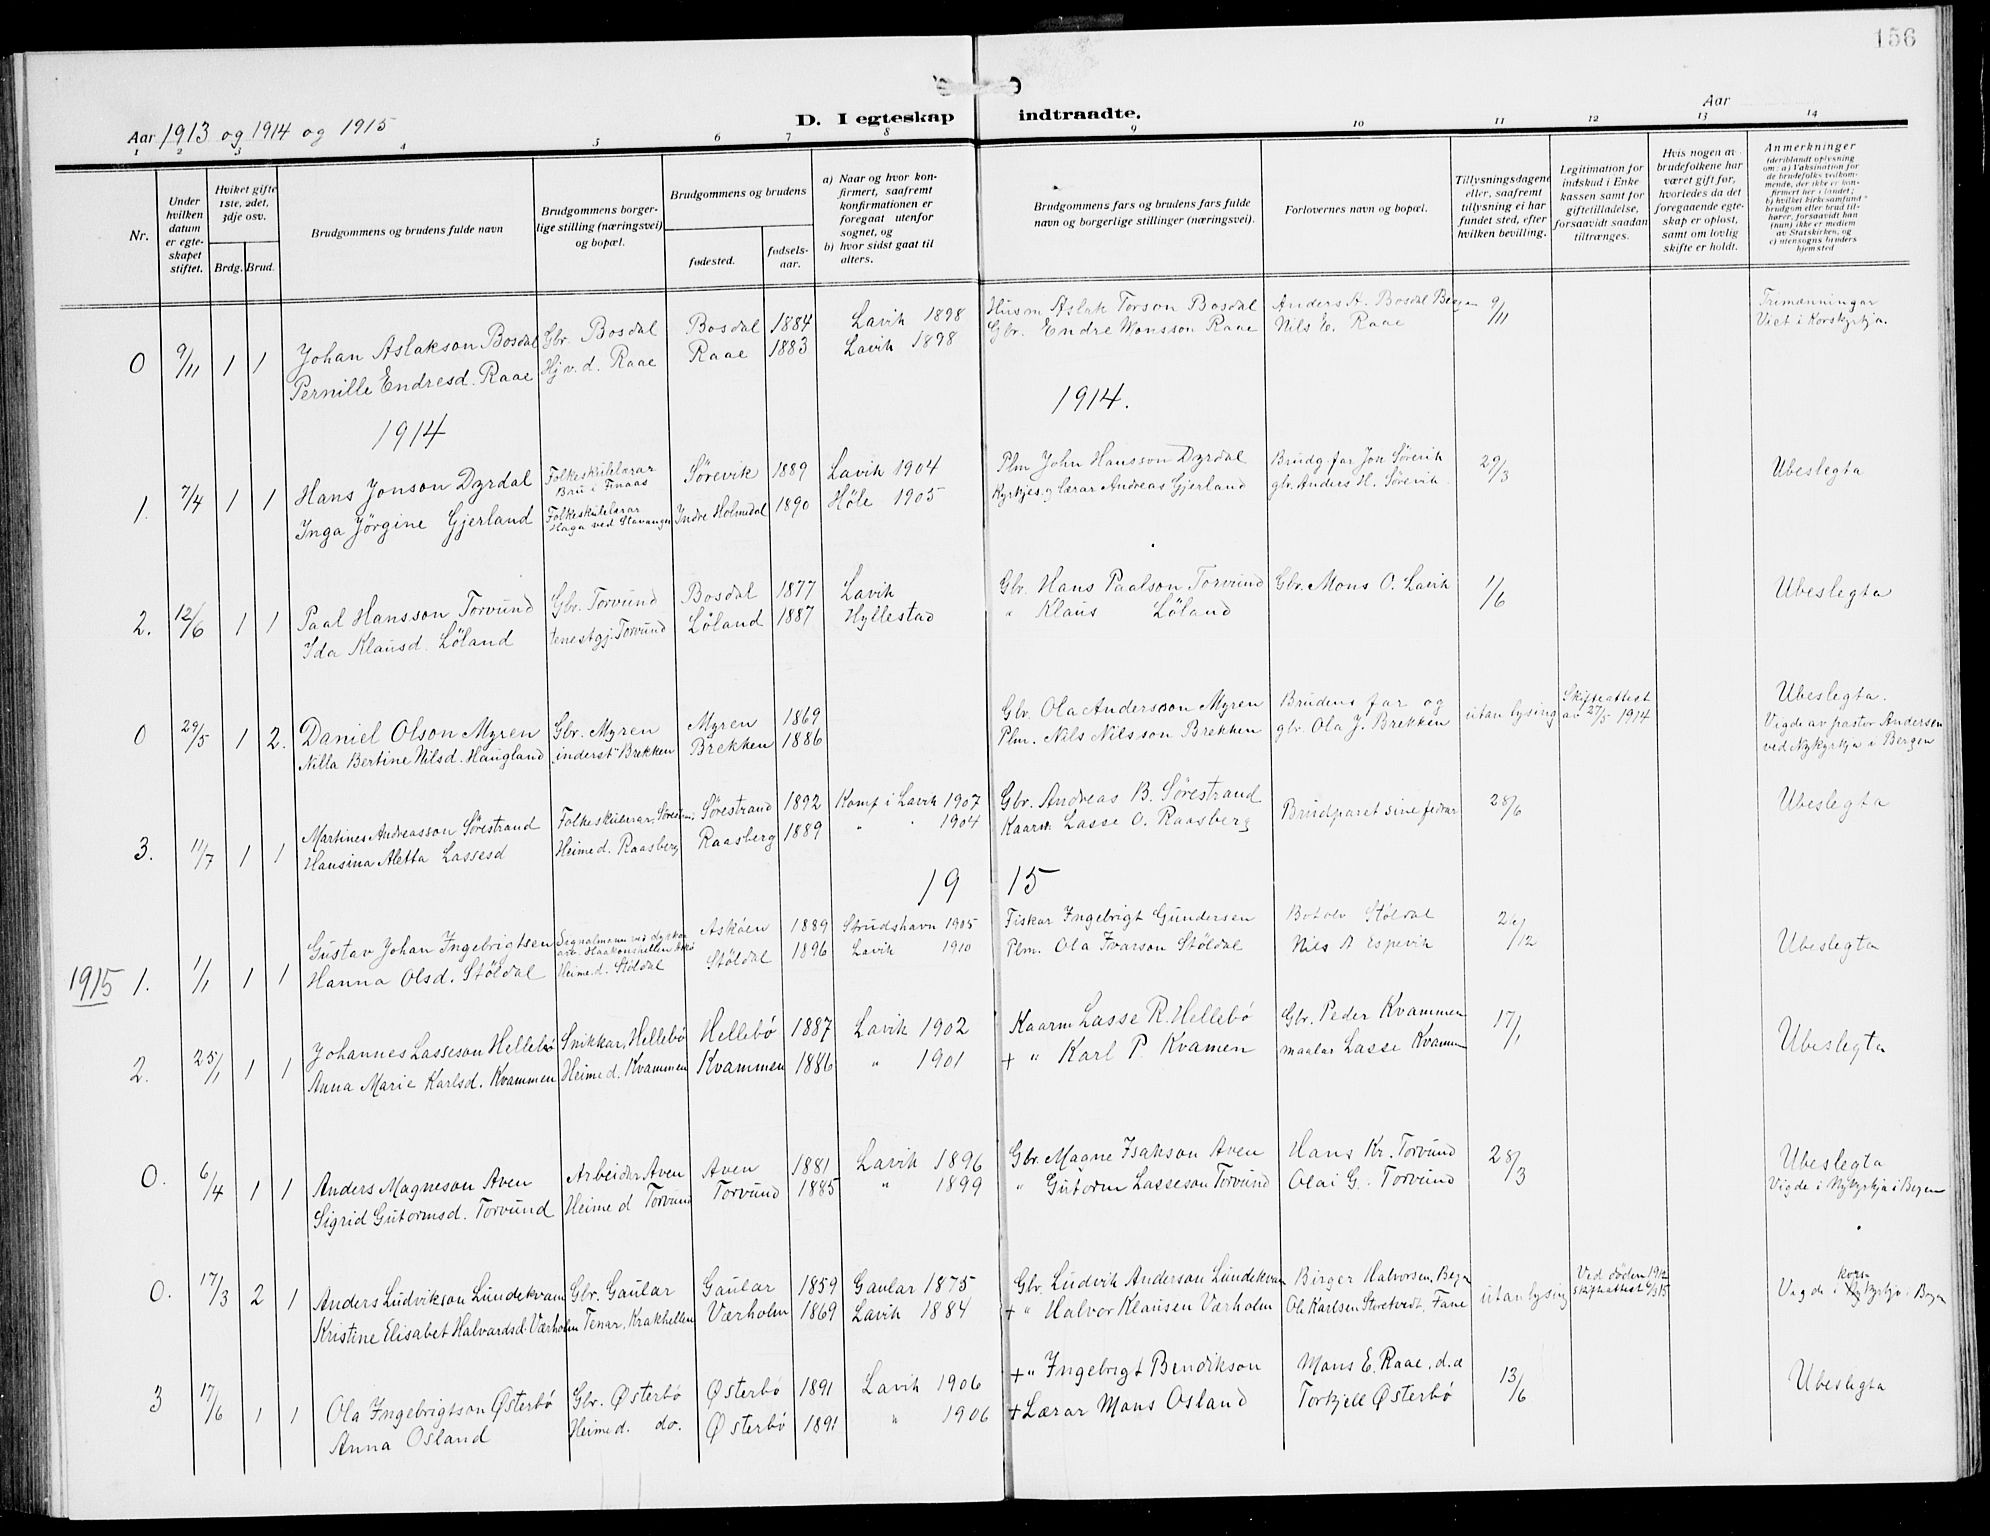 156
D. I egteskap indtraadte.
Aar 1913 og 1914 og 1915
Aar
1 2 3 4 5 6 7 8 9 10 11 12 13 14
Nr.
Under hvilken datum er egteskapet stiftet.
Hviket gifte 1ste, 2det, 3dje osv.
Brdg. Brud.
Brudgommens og brudens fulde navn
Brudgommens borgerlige stilling (næringsvei) og bopæl.
Brudgommens og brudens
fødested.
fødselsaar.
a) Naar og hvor konfirmert, saafremt konfirmationen er foregaat utenfor sognet, og
b) hvor sidst gaat til alters.
Brudgommens fars og brudens fars fulde navn og borgerlige stillinger (næringsvei).
Forlovernes navn og bopæl.
Tillysningsdagene eller, saafremt tillysning ei har fundet sted, efter hvilken bevilling.
Legitimation for indskud i Enkekassen samt for giftetilladelse, forsaavidt saadan tiltrænges.
Hvis nogen av brudefolkene har været gift før, hvorledes da det foregaaende egteskap er opløst, samt om lovlig skifte er holdt.
Anmerkninger
(deriblandt oplysning om: a) Vaksination for de brudefolks vedkommende, der ikke er konfirmert her i landet; b) hvilket kirkesamfund brudgom eller brud tilhører, forsaavidt han (hun) ikke er medlem av Statskirken, og c) utensogns bruders hjemsted
0 9/11 1 1 Johan Aslakson Bosdal Gbr. Bosdal Bosdal 1884 Lavik 1898 Husm Aslak Torson Bosdal Anders A. Bosdal Bergen 9/11 Trimænningar
Pernille Endresd. Raae Hjv. d. Raae Raae 1883 Lavik 1898 Gbr. Endre Monsson Raae Nils E. Raae Viet i Korskyrkja.
1914 1914.
1. 7/4 1 1 Hans Jonson Dyrdal Folkeskulelærar Bru i Finaas Sørevik 1889 Lavik 1904 Plm John Hansson Dyrdal Brudg. far Jon Sørevik 29/3 Ubeslegta
Inga Jörgine Gjerland Folkeskulelærar Haga ved Stavanger Indre Holmedal 1890 Høle 1905 Kyrkjes. og lærar Andreas Gjerland gbr. Anders H. Sørevik
2. 12/6 1 1 Paal Hansson Torvund Gbr. Torvund Bosdal 1877 Lavik Gbr. Hans Paalson Torvund Gbr. Mons O. Lavik 1/6 Ubeslegta
Ida Klausd. Löland tenestgj. Torvund Löland 1887 Hyllestad " Klaus Löland
0 29/5 1 2. Daniel Olson Myren Gbr. Myren Myren 1869 Gbr. Ola Andersson Myren Brudens far og utan lysing Skifteattest av 27/5 1914 Ubeslegta.
Nilla Bertine Nilsd. Haugland inderst Brekken Brekken 1886 Plm. Nils Nilsson Brekken gbr. Ola J. Brekken Vigde av pastor Andersen ved Nykyrkja i Bergen
3. 11/7 1 1 Martines Andreasson Sørestrand Folkeskulelærar, Sørestr. Sørestrand 1892 Konf i Lavik 1907 Gbr. Andreas B. Sørestrand Brudparet sine fedrar 28/6 Ubeslegta
Hansina Aletta Lassesd Heime d. Raasberg Raasberg 1889 " " 1904 Kaarm. Lasse O. Raasberg
19 15
1915 1. 1/1 1 1 Gustav Johan Ingebrigtsen Signalmann ved Haakonshellen Askø Askøen 1889 Strudshavn 1905 Fiskar Ingebrigt Gundersen Botolv Støldal 26/12 Ubeslegta
Hanna Olsd. Støldal Heime d. Støldal Støldal 1896 Lavik 1910 Plm. Ola Ivarson Støldal Nils A Espevik
2. 25/1 1 1 Johannes Lasseson Hellebø Snikkar, Hellebø Hellebø 1887 Lavik 1902 Kaarm Lasse R. Hellebø Gbr. Peder Kvammen 17/1 Ubeslegta
Anna Marie Karlsd. Kvammen Heime d. Kvammen Kvammen 1886 " 1901 + " Karl P. Kvamen maalar Lasse Kvammen
0. 6/4 1 1 Anders Magneson Aven Arbeider Aven Aven 1881 Lavik 1896 Gbr. Magne Isakson Aven Hans Kr. Torvund 28/3 Ubeslegta
Sigrid Gutormsd. Torvund Heime d Torvund Torvund 1885 " 1899 " Gutorm Lasseson Torvund Olai G. Torvund Vigde i Nykyrkja i Bergen
0. 17/3 2 1 Anders Ludvikson Lundekvam Gbr. Gaular Gaular 1859 Gaular 1875 Gbr. Ludvik Anderson Lundekvam Birger Halvorsen, Bergen utan lysing Ved døden 1912 skifteattest Vigde i korskyrkja i Bergen
Kristine Elisabet Halvardsd. Værholm Tenar, Krakhellen Værholm 1869 Lavik 1884 + " Halvor Klausen Værholm Ole Karlsen Storetvedt, Fane
3 17/6 1 1 Ola Ingebrigtson Østerbø Gbr. Østerbø Østerbø 1891 Lavik 1906 + " Ingebrigt Bendikson Mons E. Raae, d.a 13/6 Ubeslegta
Anna Osland Heime d. do. Østerbø 1891 " 1906 + Lærar Mons Osland Torkjell Østerbø